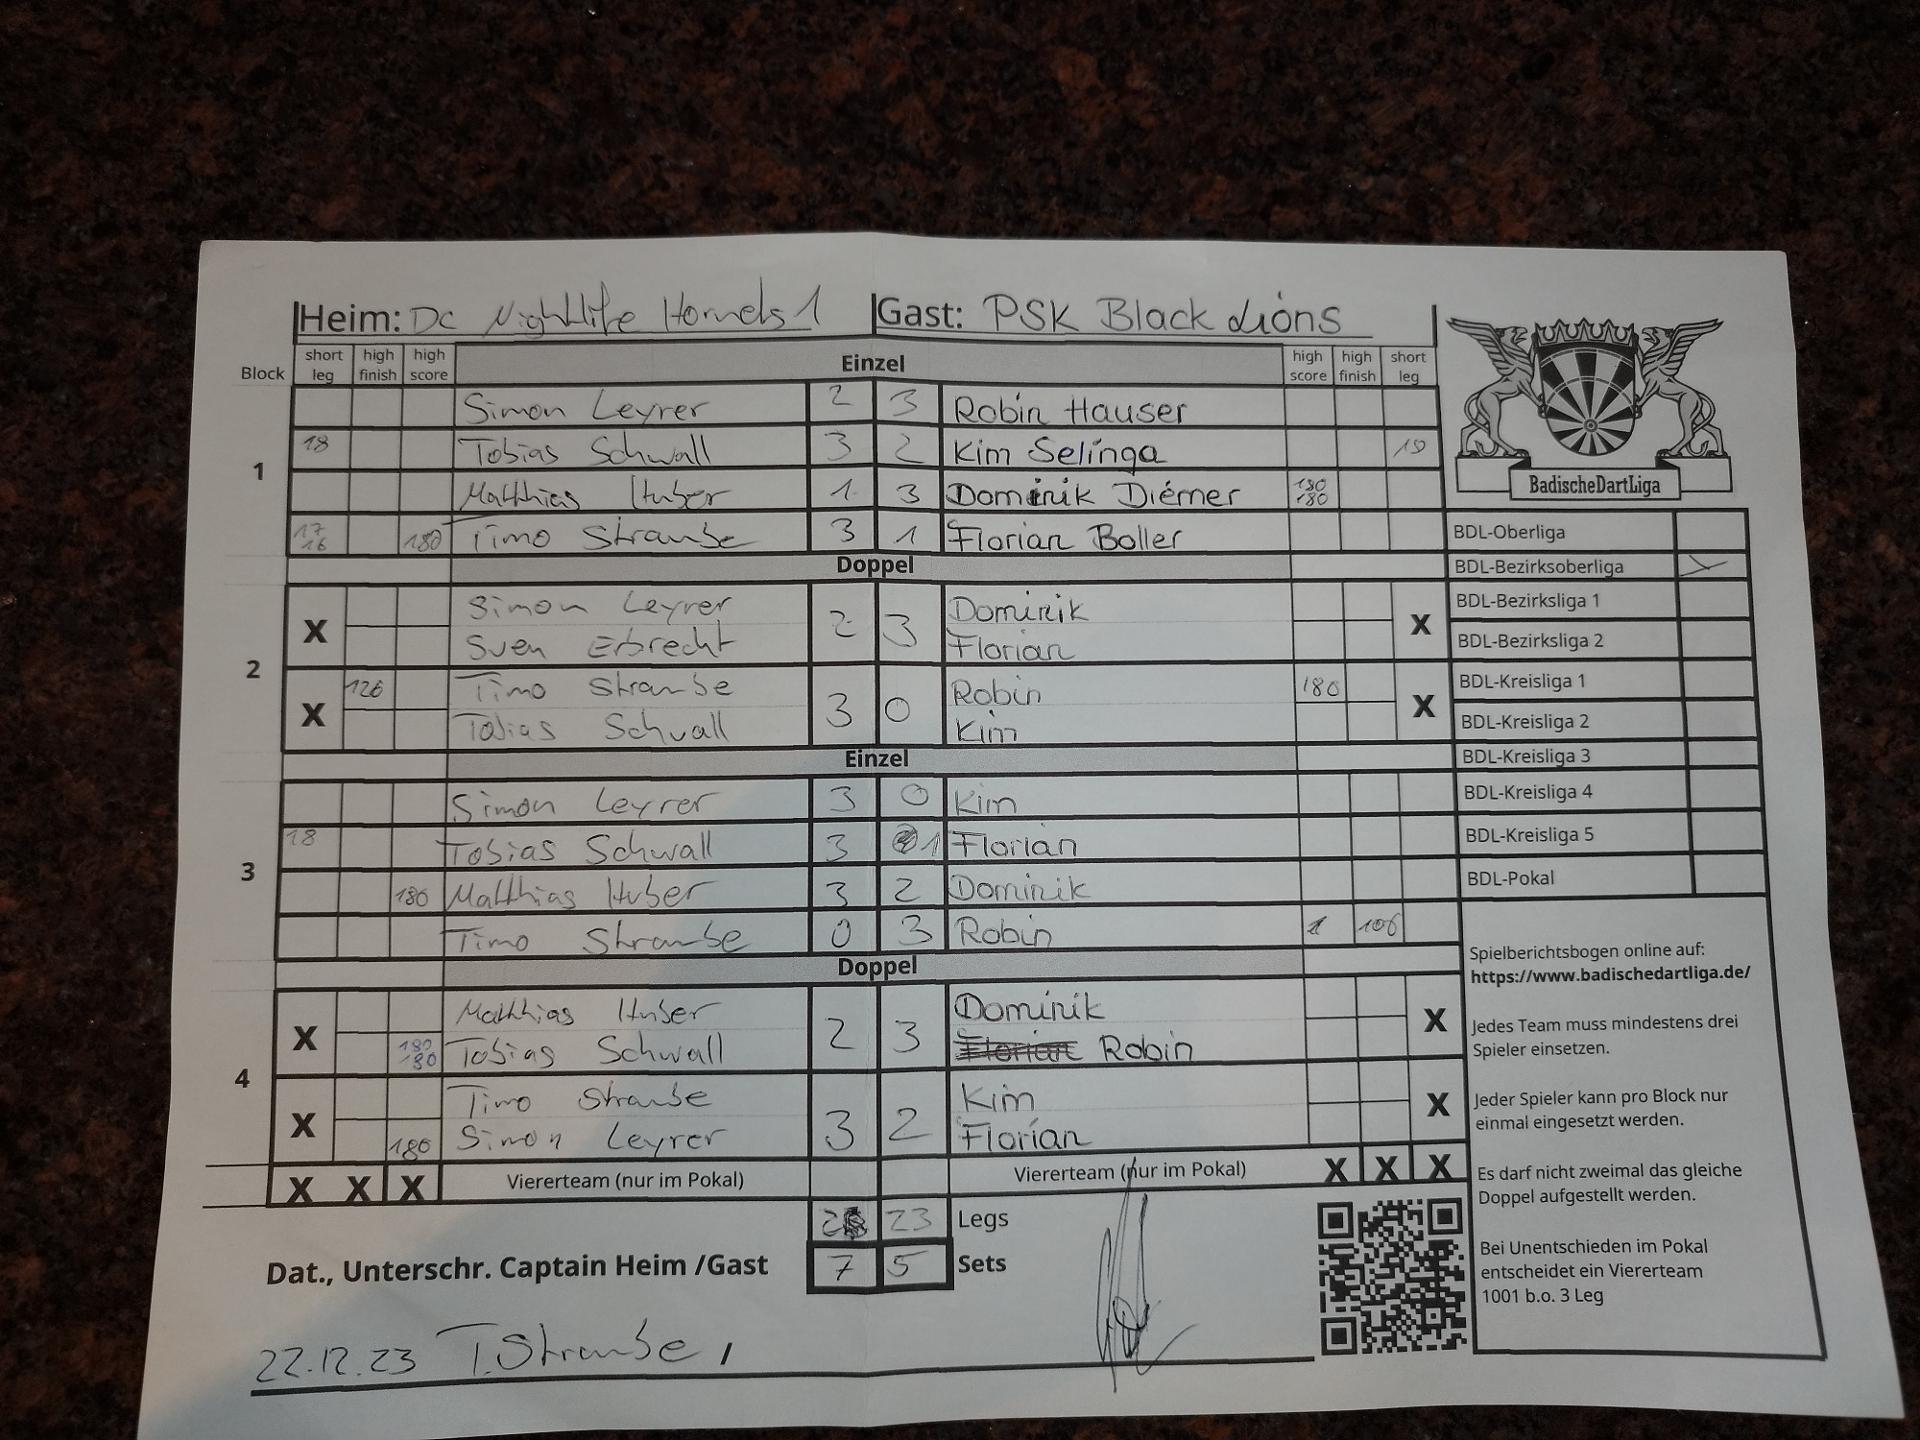 Heim: DC Nightlife Hornets 1 Gast: PSK Black Lions
Block short leg high finish high score Einzel high score high finish short leg
1
Simon Leyrer 2 3 Robin Hauser
18 Tobias Schwall 3 2 Kim Selinga 19
Matthias Huber 1 3 Dominik Diemer 180 180
17 16 180 Timo Straube 3 1 Florian Boller
Doppel
2
X Simon Leyrer 2 3 Dominik X
Sven Erbrecht Florian
X 126 Timo Straube 3 0 Robin 180 X
Tobias Schwall Kim
Einzel
3
Simon Leyrer 3 0 Kim
18 Tobias Schwall 3 1 Florian
180 Matthias Huber 3 2 Dominik
Timo Straube 0 3 Robin 106
Doppel
4
X Matthias Huber 2 3 Dominik X
180 180 Tobias Schwall Florian Robin
X Timo Straube 3 2 Kim X
180 Simon Leyrer Florian
X X X Viererteam (nur im Pokal) Viererteam (nur im Pokal) X X X
23 Legs
7 5 Sets
Dat., Unterschr. Captain Heim /Gast
22.12.23 T. Straube,
BadischeDartLiga
BDL-Oberliga
BDL-Bezirksoberliga
BDL-Bezirksliga 1
BDL-Bezirksliga 2
BDL-Kreisliga 1
BDL-Kreisliga 2
BDL-Kreisliga 3
BDL-Kreisliga 4
BDL-Kreisliga 5
BDL-Pokal
Spielberichtsbogen online auf:
https://www.badischedartliga.de/
Jedes Team muss mindestens drei
Spieler einsetzen.
Jeder Spieler kann pro Block nur
einmal eingesetzt werden.
Es darf nicht zweimal das gleiche
Doppel aufgestellt werden.
Bei Unentschieden im Pokal
entscheidet ein Viererteam
1001 b.o. 3 Leg